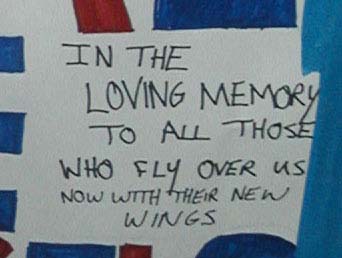 IN THE
LOVING MEMORY
TO ALL THOSE
WHO FLY OVER US
NOW WITH THEIR NEW
WINGS